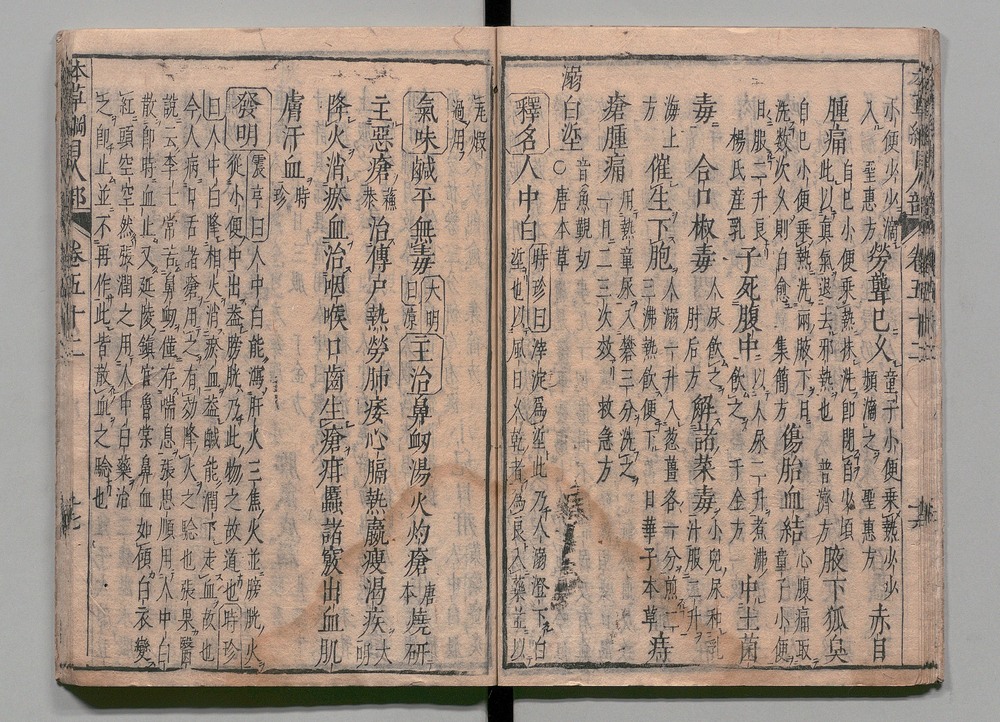 本草綱目人部 卷五十二
小便少少滴
入 聖惠方 勞聾已久 童子小便乘熱少少
頻滴之 聖惠方 赤目
腫痛 自己小便乘熱抹洗即閉目少頃
此以真氣退去邪熱也 普濟方 腋下狐臭
自己小便乘熱洗兩腋下日
洗數次久則自愈 集簡方 傷胎血結 心腹痛取
童子小便
日服二升良
楊氏産乳 子死腹中 以人尿二升煮沸
飲之 千金方 中土菌
毒 合口椒毒 人尿飲之
肘后方 解諸菜毒 小兒尿和乳
汁服二升
海上
方 催生下胞 人溺一升入葱薑各一分煎二
三沸熱飲便下 日華子本草 痔
瘡腫痛 用熱童尿入礬三分洗之
一日二三次效 救急方
溺白垽 音魚覲切
○唐本草
釋名 人中白 時珍曰滓淀爲垽此乃人溺澄下白
垽也以風日久乾者為良入藥並以
瓦煅
過用
氣味 鹹平無毒 大明曰涼 主治 鼻衄湯火灼瘡 唐本 燒研
主惡瘡 蘇恭 治傳尸熱勞肺痿心膈熱羸瘦渴疾 大明
降火消瘀血治咽喉口齒生瘡疳䘌諸竅出血肌
膚汗血 時珍
發明 震亨曰人中白能瀉肝火三焦火並膀胱火
從小便中出蓋膀胱乃此物之故道也時珍
曰人中白降相火消瘀血蓋鹹能潤下走血故也
今人病口舌諸瘡用之有効降火之驗也張杲醫
說云李七常苦鼻衄僅存喘息張思順用人中白
散即時血止又延陵鎮官魯棠鼻血如傾白衣變
紅頭空空然張潤之用人中白藥治
之即止並不再作此皆散血之驗也
本草綱目人部 卷五十二